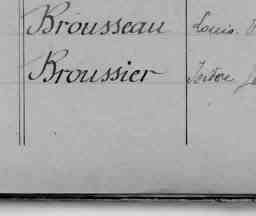 Brousseau Louis
Broussier Isidore